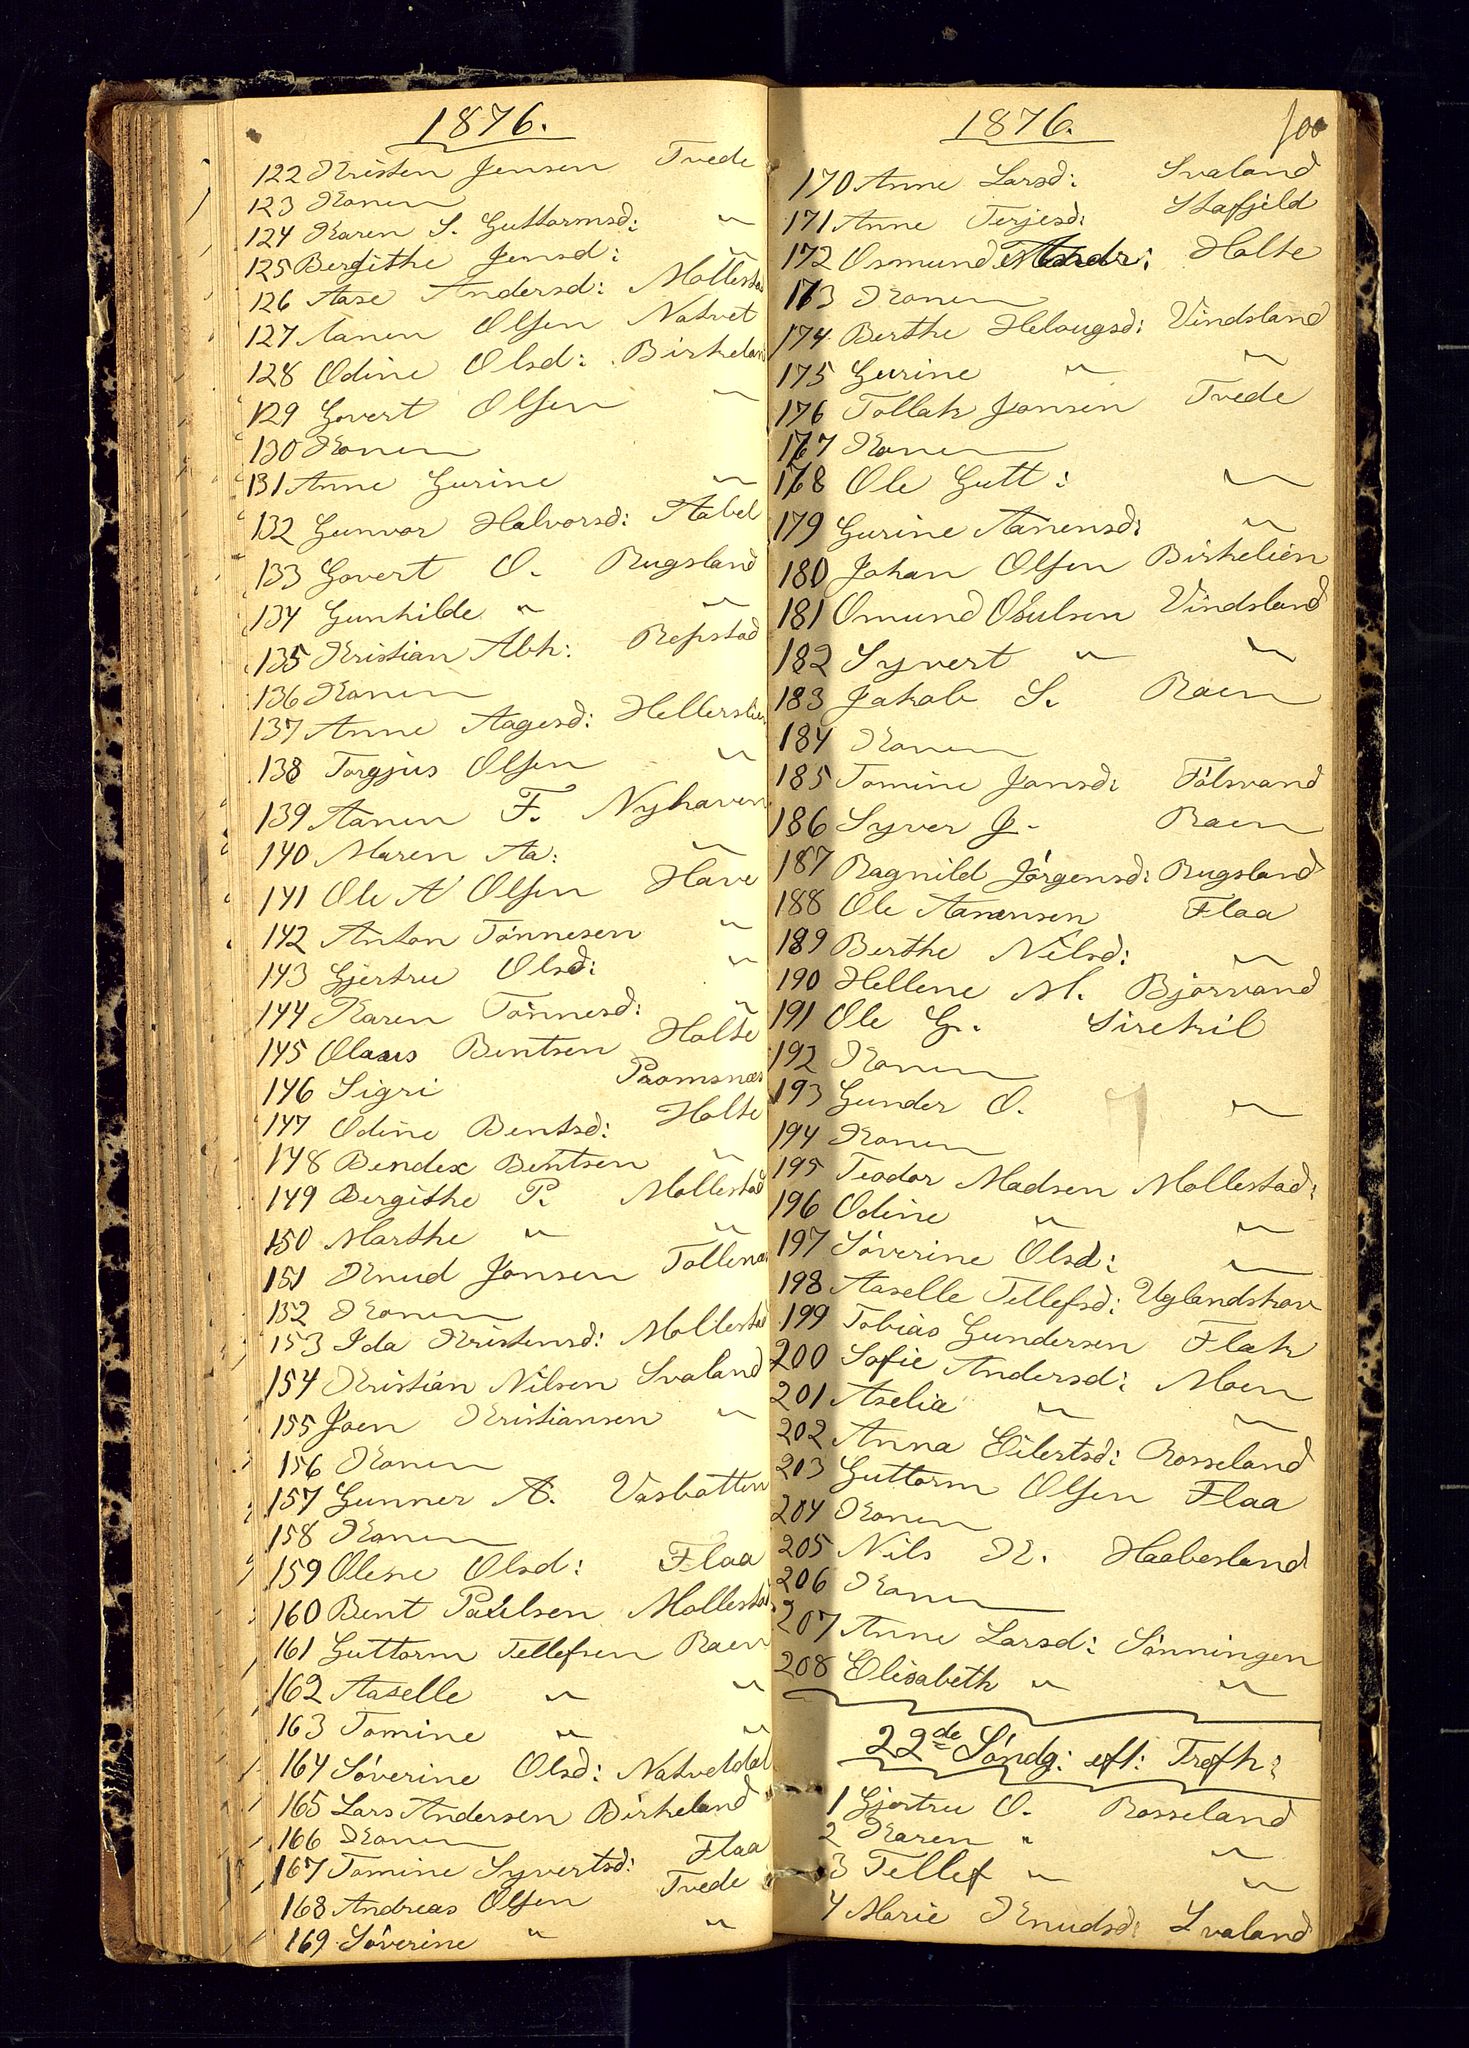 1876.
122 Kristen Jensen Tvede
123 Konen
124 Karen S. Guttormsd: "
125 Bergithe Jensd: "
126 Aase Andersd: Mollestad
127 Aanen Olsen Natvet
128 Odine Olsd: Birkeland
129 Govert Olsen "
130 Konen
131 Anne Gurine "
132 Gunvor Halvorsd: Aabel
133 Govert O. Rugsland
134 Gunhilde " "
135 Kristian Abh: Repstad
136 Konen
137 Anne Aagesd: Hellerslien
138 Torgjus Olsen "
139 Aanen F. Nyhaven
140 Maren Aa: "
141 Ole A Olsen Have
142 Anton Tönnesen "
143 Gjertru Olsd: "
144 Karen Tönnesd: "
145 Olaus Bentsen Holte
146 Sigri Promsnæs
147 Odine Bentsd: Holte
148 Bendex Bentsen "
149 Bergithe P. Mollestad
150 Marthe " "
151 Knud Jonsen Tollenæs
152 Konen
153 Ida Kristensd: Mollestad
154 Kristian Nilsen Svaland
155 Joen Kristiansen "
156 Konen
157 Gunner A. Vasbotten
158 Konen
159 Olene Olsd: Flaa
160 Bent Paulsen Mollestad
161 Guttorm Tellefsen Raen
162 Aaselle " "
163 Tomine " "
164 Söverine Olsd: Natvetdal
165 Lars Andersen Birkeland
166 Konen
167 Tomine Syvertsd: Flaa
168 Andreas Olsen Tvede
169 Söverine " "
1876. 100
170 Anne Larsd: Svaland
171 Anne Terjesd: Stafjeld
172 Osmund Andr: Holte
173 Konen
174 Berthe Helougsd: Vindsland
175 Gurine " "
176 Tollak Jonsen Tvede
177 Konen
178 Ole Gutt: "
179 Gurine Aanensd: "
180 Johan Olsen Birkelien
181 Osmund Osulsen Vindsland
182 Syvert " "
183 Jakob S. Raen
184 Konen
185 Tomine Jonsd: Tolsvand
186 Syver J. Raen
187 Ragnild Jörgensd: Rugsland
188 Ole Aanensen Flaa
189 Berthe Nilsd: "
190 Hellene M. Bjorvand
191 Ole G. Sirekil
192 Konen
193 Gunder O. "
194 Konen
195 Teodor Madsen Mollestad:
196 Odine " "
197 Söverine Olsd: "
198 Aaselle Tellefsd: Uglandskov
199 Tobias Gundersen Flak
200 Sofie Andersd: Moen
201 Aselia " "
202 Anna Eilertsd: Rosseland
203 Guttorm Olsen Flaa
204 Konen
205 Nils K. Haabesland
206 Konen
207 Anne Larsd: Sönningen
208 Elisabeth " "
22de Söndg: eft: Trefh:
1 Gjertru O. Rosseland
2 Karen " "
3 Tellef " "
4 Marie Knudsd: Svaland